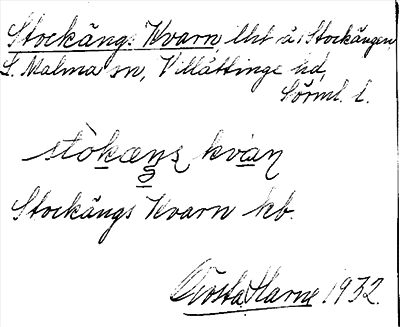 Stockängs Kvarn, lht å Stockängen,
S. Malma sn, Villåttinge hd,
Sörml. l.
stòkæŋs kvàn
Stockängs Kvarn kb.
Gösta Harne 1932.